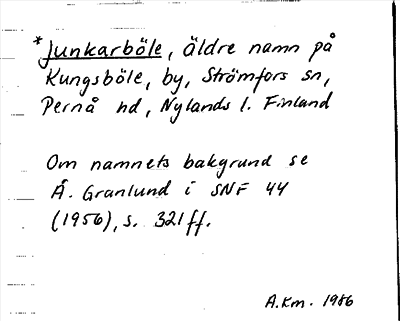 *Junkarböle, äldre namn på
Kungsböle, by, Strömfors sn,
Pernå hd, Nylands l. Finland
Om namnets bakgrund se
Å. Granlund i SNF 44
(1956), s. 321ff.
A.Km. 1986